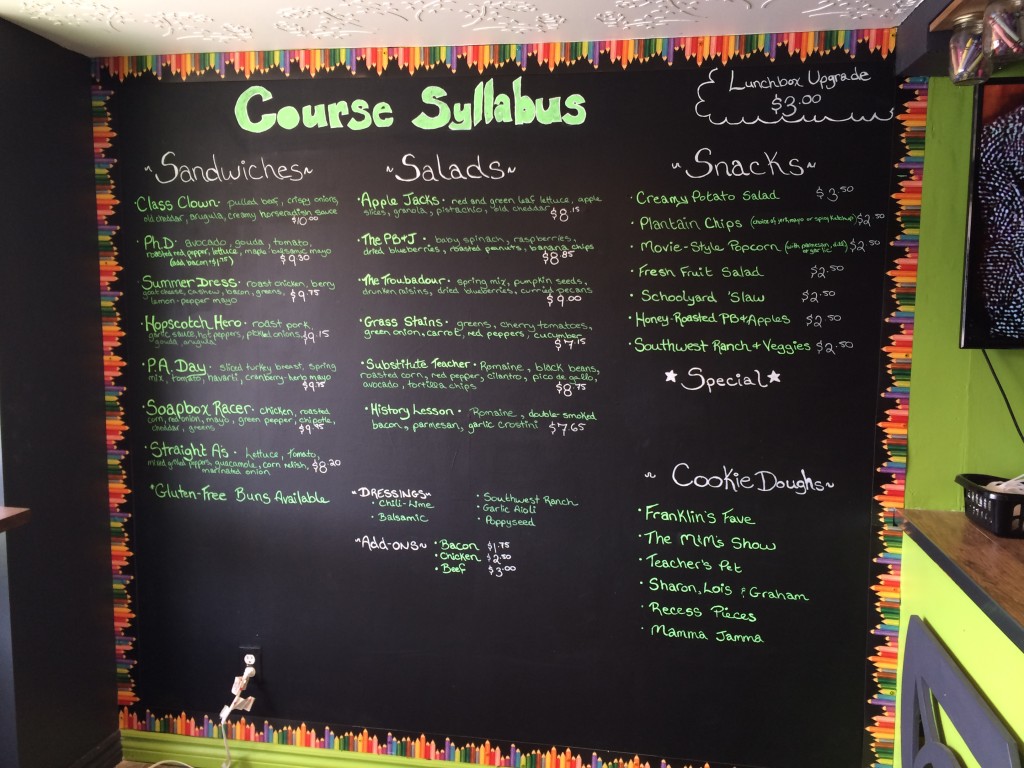 Course Syllabus
Lunchbox Upgrade
$3.00
~Sandwiches~
· Class Clown · pulled beef, crispy onions,
old cheddar, arugula, creamy horseradish sauce
$10.00
· Ph.D · avocado, gouda, tomato,
roasted red pepper, lettuce, maple balsamic mayo
(add bacon $1.75) $9.30
· Summer Dress · roast chicken, berry
goat cheese, cashew, bacon, greens, $9.75
lemon-pepper mayo
· Hopscotch Hero · roast pork,
garlic sauce, hot peppers, pickled onions, $9.15
gouda, arugula
· P.A. Day · sliced turkey breast, spring
mix, tomato, havarti, cranberry-herb mayo
$9.75
· Soapbox Racer · chicken, roasted
corn, red onion, mayo, green pepper, chipotle,
cheddar, greens $9.75
· Straight A's · Lettuce, Tomato,
mixed grilled peppers, guacamole, corn relish, $8.20
marinated onion
*Gluten-Free Buns Available
~Salads~
· Apple Jacks · red and green leaf lettuce, apple
slices, granola, pistachio, old cheddar $8.15
· The PB+J · baby spinach, raspberries,
dried blueberries, roasted peanuts, banana chips
$8.85
· The Troubadour · spring mix, pumpkin seeds,
drunken raisins, dried blueberries, curried pecans
$9.00
· Grass Stains · greens, cherry tomatoes,
green onion, carrot, red peppers, cucumber
$7.15
· Substitute Teacher · Romaine, black beans,
roasted corn, red pepper, cilantro, pico de gallo,
avocado, tortilla chips $8.75
· History Lesson · Romaine, double-smoked
bacon, parmesan, garlic crostini $7.65
~Dressings~
· Chili-Lime
· Balsamic
· Southwest Ranch
· Garlic Aioli
· Poppyseed
~Add-ons~ · Bacon $1.75
· Chicken $2.50
· Beef $3.00
~Snacks~
· Creamy Potato Salad $3.50
· Plantain Chips (choice of jerk mayo or spicy ketchup) $2.50
· Movie-Style Popcorn (with parmesan, dill) $2.50
· Fresh Fruit Salad $2.50
· Schoolyard 'Slaw $2.50
· Honey-Roasted PB+Apples $2.50
· Southwest Ranch + Veggies $2.50
★Special★
~Cookie Doughs~
· Franklin's Fave
· The M+M's Show
· Teacher's Pet
· Sharon, Lois & Graham
· Recess Pieces
· Mamma Jamma